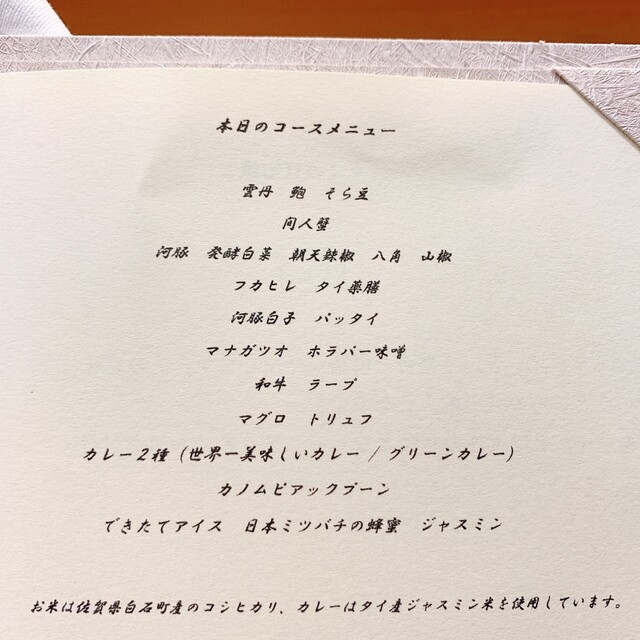 本日のコースメニュー
雲丹　鮑　そら豆
間人蟹
河豚　発酵白菜　朝天辣椒　八角　山椒
フカヒレ　タイ薬膳
河豚白子　パッタイ
マナガツオ　ホラパー味噌
和牛　ラープ
マグロ　トリュフ
カレー２種（世界一美味しいカレー / グリーンカレー）
カノムピアックプーン
できたてアイス　日本ミツバチの蜂蜜　ジャスミン
お米は佐賀県白石町産のコシヒカリ、カレーはタイ産ジャスミン米を使用しています。